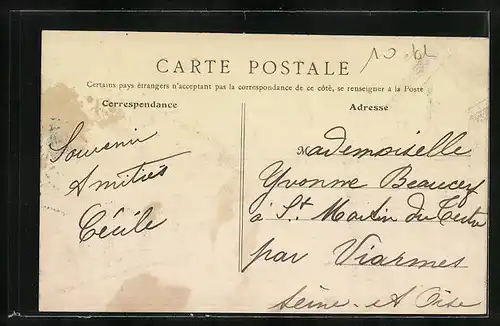 10
CARTE POSTALE
Certains pays étrangers n'acceptant pas la correspondance de ce côté, se renseigner à la Poste
Correspondance
Souvenir
Amitiés
Cécile
Adresse
Mademoiselle
Yvonne
à St Martin du Tertre
par Viarmes
Seine et Oise